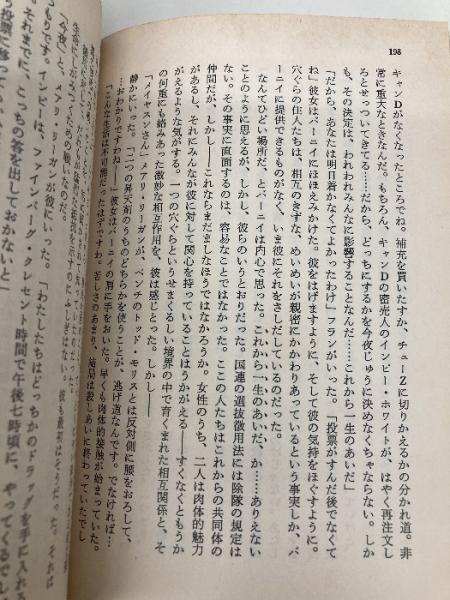 198
キャンDがなくなったところでね。補充を買いたすか、チューZに切りかえるかの分かれ道。非
常に重大なときなんだ。もちろん、キャンDの密売人のインピー・ホワイトが、はやく再注文し
ろとせっついてきてる……だから、どっちにするかを今夜じゅうに決めなくちゃならない。しか
も、その決定は、われわれみんなに影響することなんだ……これから一生のあいだ」
「だから、あなたは明日着かなくてよかったわけ」フランがいった。「投票がすんだ後でなくて
ね」彼女はバーニイにほほえみかけた。彼をはげますように、そして彼の気持をほぐすように。
穴ぐらの住人たちは、相互のきずな、めいめいが親密にかかわりあっているという事実しか、バ
ーニイに提供できるものがなく、いま彼にそれをさしだしているのだった。
なんてひどい場所だ、とバーニイは内心で思った。これから一生のあいだ、か……ありえない
ことのように思えるが、しかし、彼らのいうとおりだった。国連の選抜徴用法には除隊の規定は
ない。その事実に直面するのは、容易なことではなかった。ここの人たちはこれからの共同体の
仲間だが、しかし――これならまだましなほうではなかろうか。女性のうち、二人は肉体的魅力
があるし、それにみんなが彼に対して関心を持っていることはうかがえる――すくなくともうか
がえるような気がする。一つの穴ぐらというせまくるしい境界の中で育くまれた相互関係と、そ
の何重にも絡みあった微妙な相互作用を、彼は感じとった。しかし――
「メイヤスンさん」メアリ・リーガンが、ベンチのトッド・モリスとは反対側に腰をおろして、
静かにいった。「二つの昇天剤のうちのどちらかを使うことが、逃げ道なんです。でなければ……
…おわかりですね――」彼女はバーニイの肩に手をおいた。早くも肉体的接触が始まっていた。
「こんな生活は不可能だったはずですわ。苦しさのあまり、結局は殺しあいに終わっていたでし